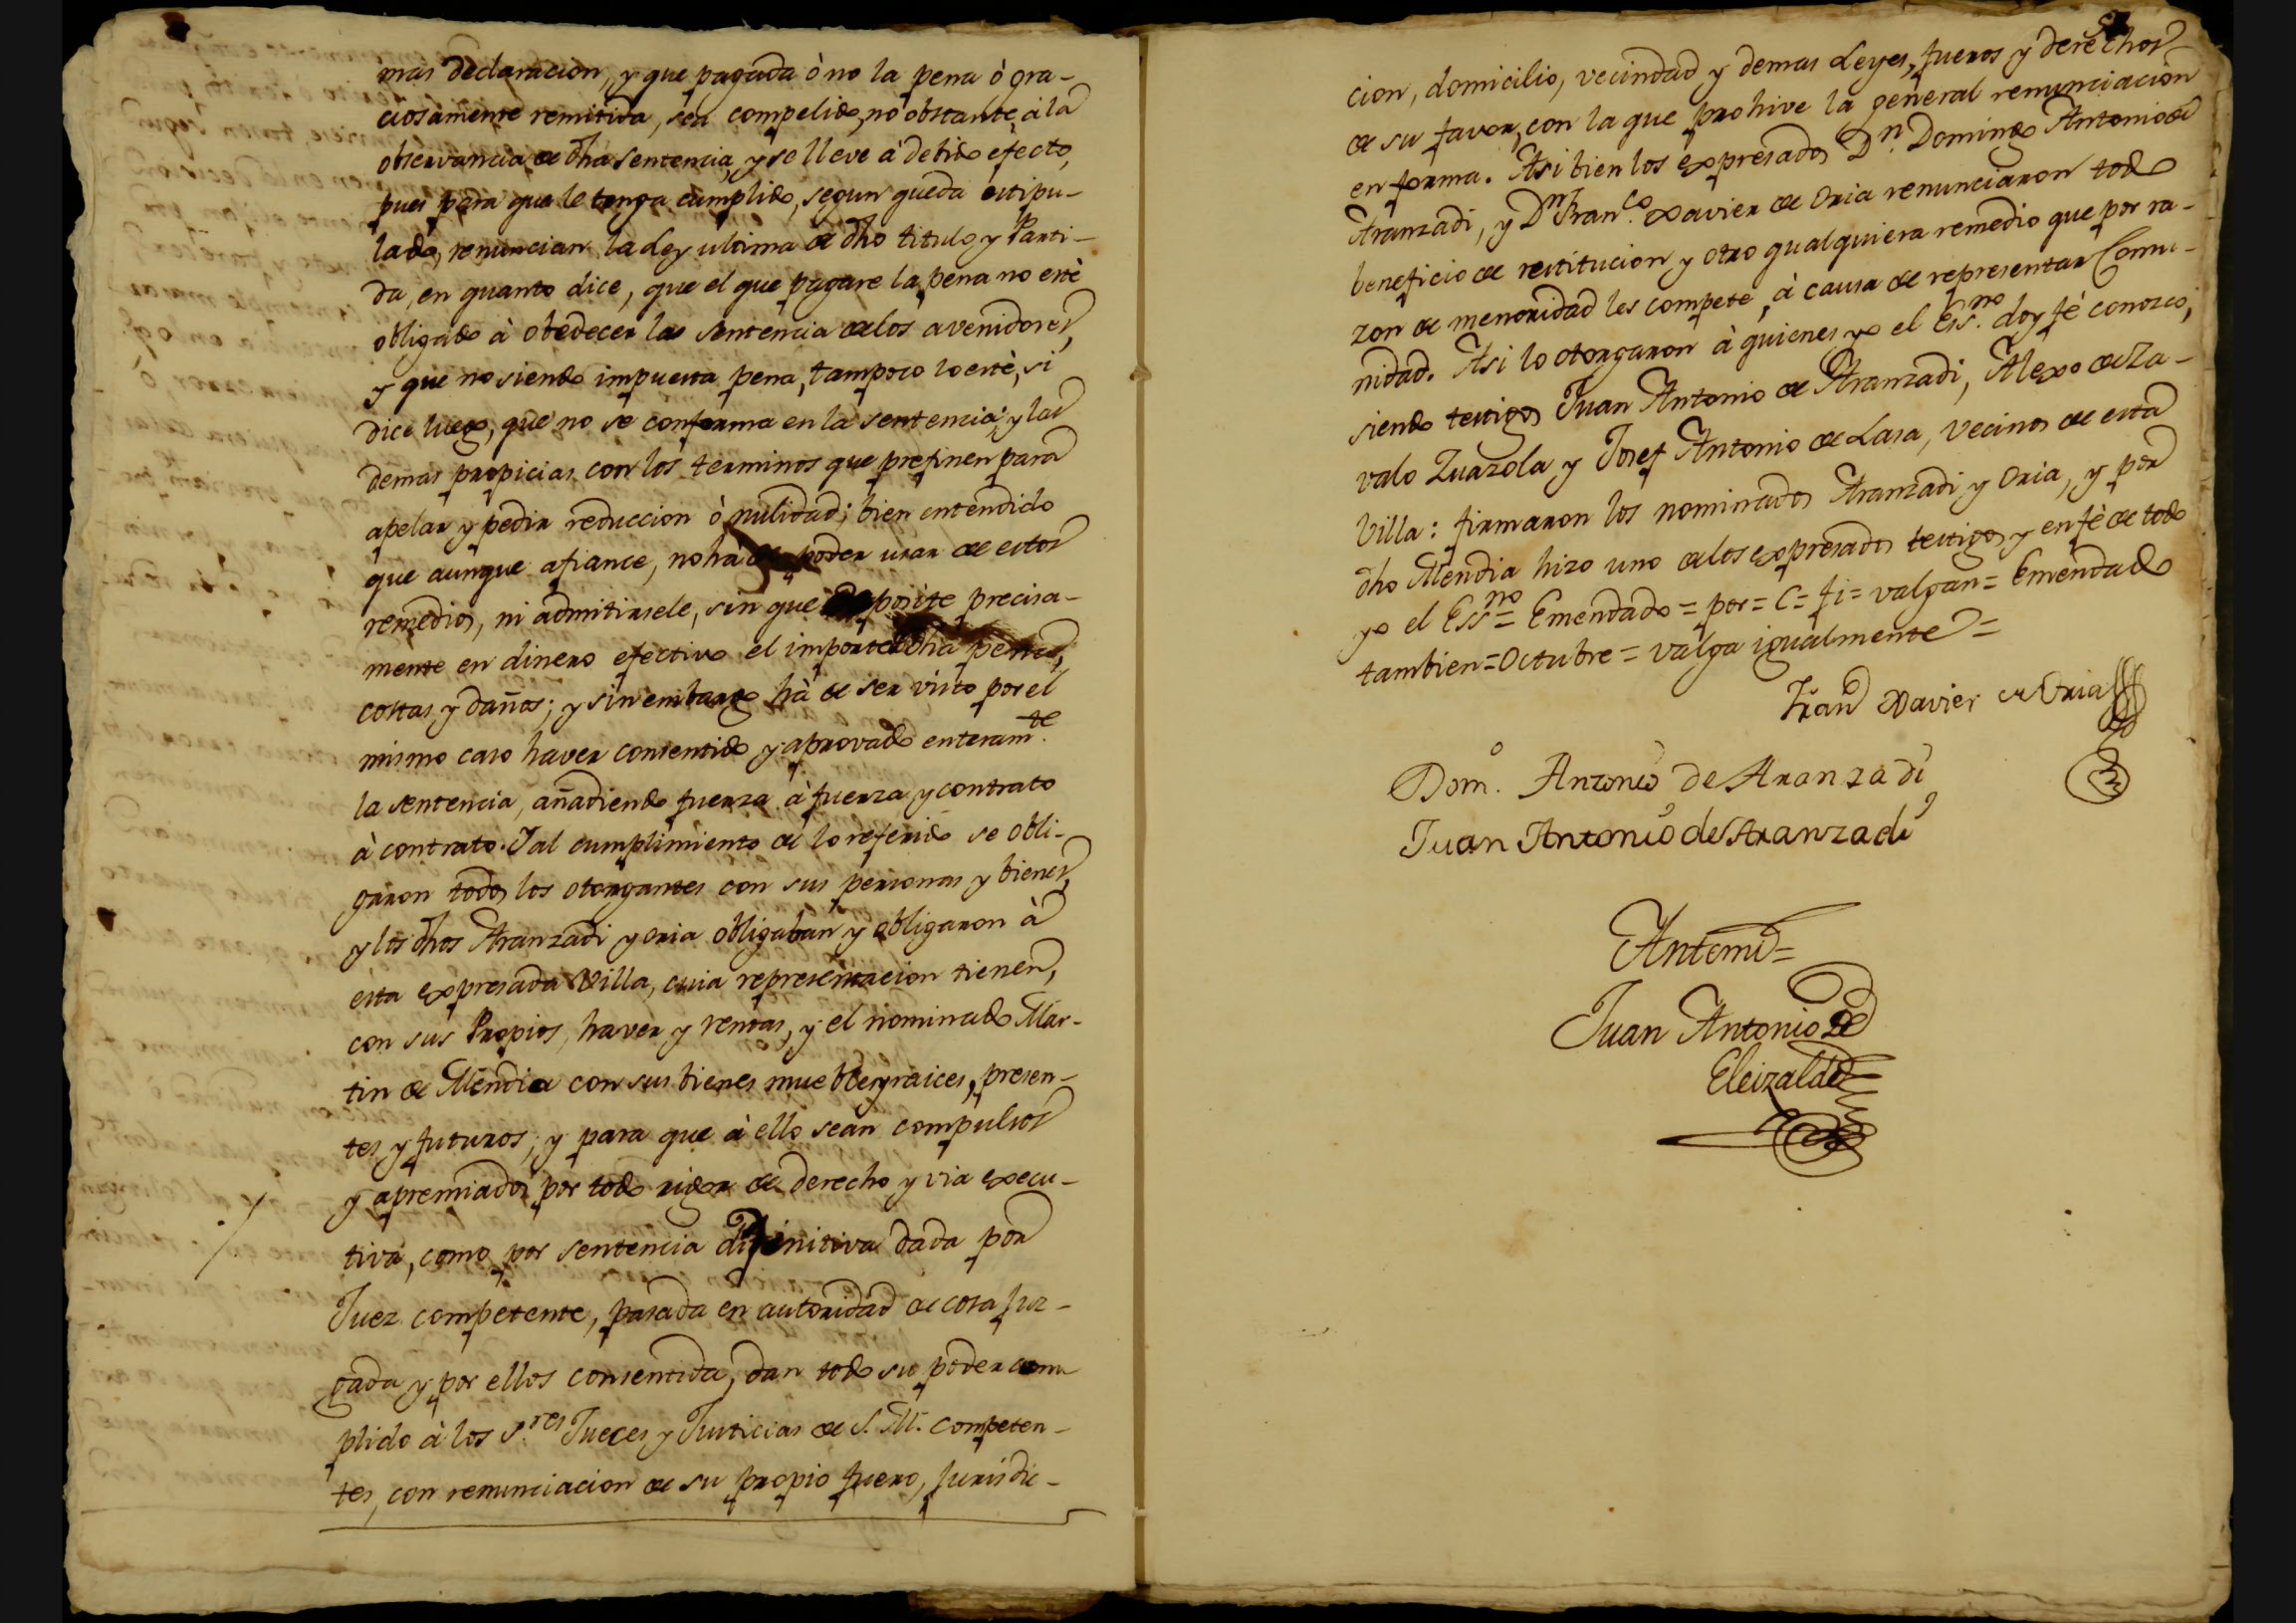 mas declaracion, y que pagada ò no la pena ò gra-
ciosamente remitida, sea compelido, no obstante, à la
observancia de dha sentencia, y se lleve à debido efecto,
pues para que le tenga cumplido, segun queda estipu-
lado, renuncian la Ley ultima de dho titulo y Parti-
da, en quanto dice, que el que pagare la pena no estè
obligado à obedecer la sentencia de los avenidores,
y que no siendo impuesta pena, tampoco lo estè, si
dice luego, que no se conforma en la sentencia; y las
demas propicias con los terminos que prefinen para
apelar y pedir reduccion ò nulidad; bien entendido
que aunque afiance, no hà de poder usar de estos
remedios, ni admitirsele, sin que deposite precisa-
mente en dinero efectivo el importe dha pena,
costas y daños; y sin embargo hà de ser visto por el
mismo caso haver consentido y aprovado enteramte.
la sentencia, añadiendo fuerza à fuerza y contrato
à contrato. Y al cumplimiento de lo referido se obli-
garon todos los otorgantes con sus personas y bienes,
y los dhos Aranzadi y oria obligaban y obligaron à
esta expresada Villa, cuia representacion tienen,
con sus Propios, haver y rentas, y el nominado Mar-
tin de Mendia con sus bienes muebles y raices, presen-
tes y futuros; y para que à ello sean compulsos
y apremiados por todo rigor de derecho y via execu-
tiva, como por sentencia difinitiva dada por
Juez competente, pasada en autoridad de cosa juz-
gada y por ellos consentida, dan todo su poder cum-
plido à los S.res Jueces y Justicias de S. M. competen-
tes, con renunciacion de su propio fuero, jurisdic-
cion, domicilio, vecindad y demas Leyes, fueros y derechos
de su favor, con la que prohive la general renunciacion
en forma. Asi bien los expresados Dn. Domingo Antonio de
Aranzadi, y Dn Franco. Xavier de Oria renunciaron todo
beneficio de restitucion y otro qualquiera remedio que por ra-
zon de menoridad les compete, à causa de representar Comu-
nidad. Asi lo otorgaron à quienes yo el Essno. doy fè conozco,
siendo testigos Juan Antonio de Aranzadi, Alexo de Za-
valo Zuazola y Josef Antonio de Lasa, vecinos de esta
Villa: firmaron los nominados Aranzadi y Oria, y por
dho Mendia hizo uno de los expresados testigos y en fè de todo
yo el Essno = Emendado = por = C = fi = valgan = Emendado
tambien = Octubre = valga igualmente =
Fran Xavier de Oria
Dom.o Antonio de Aranzadi
Juan Antonio de Aranzadi
Antemi =
Juan Antonio de
Eleizalde